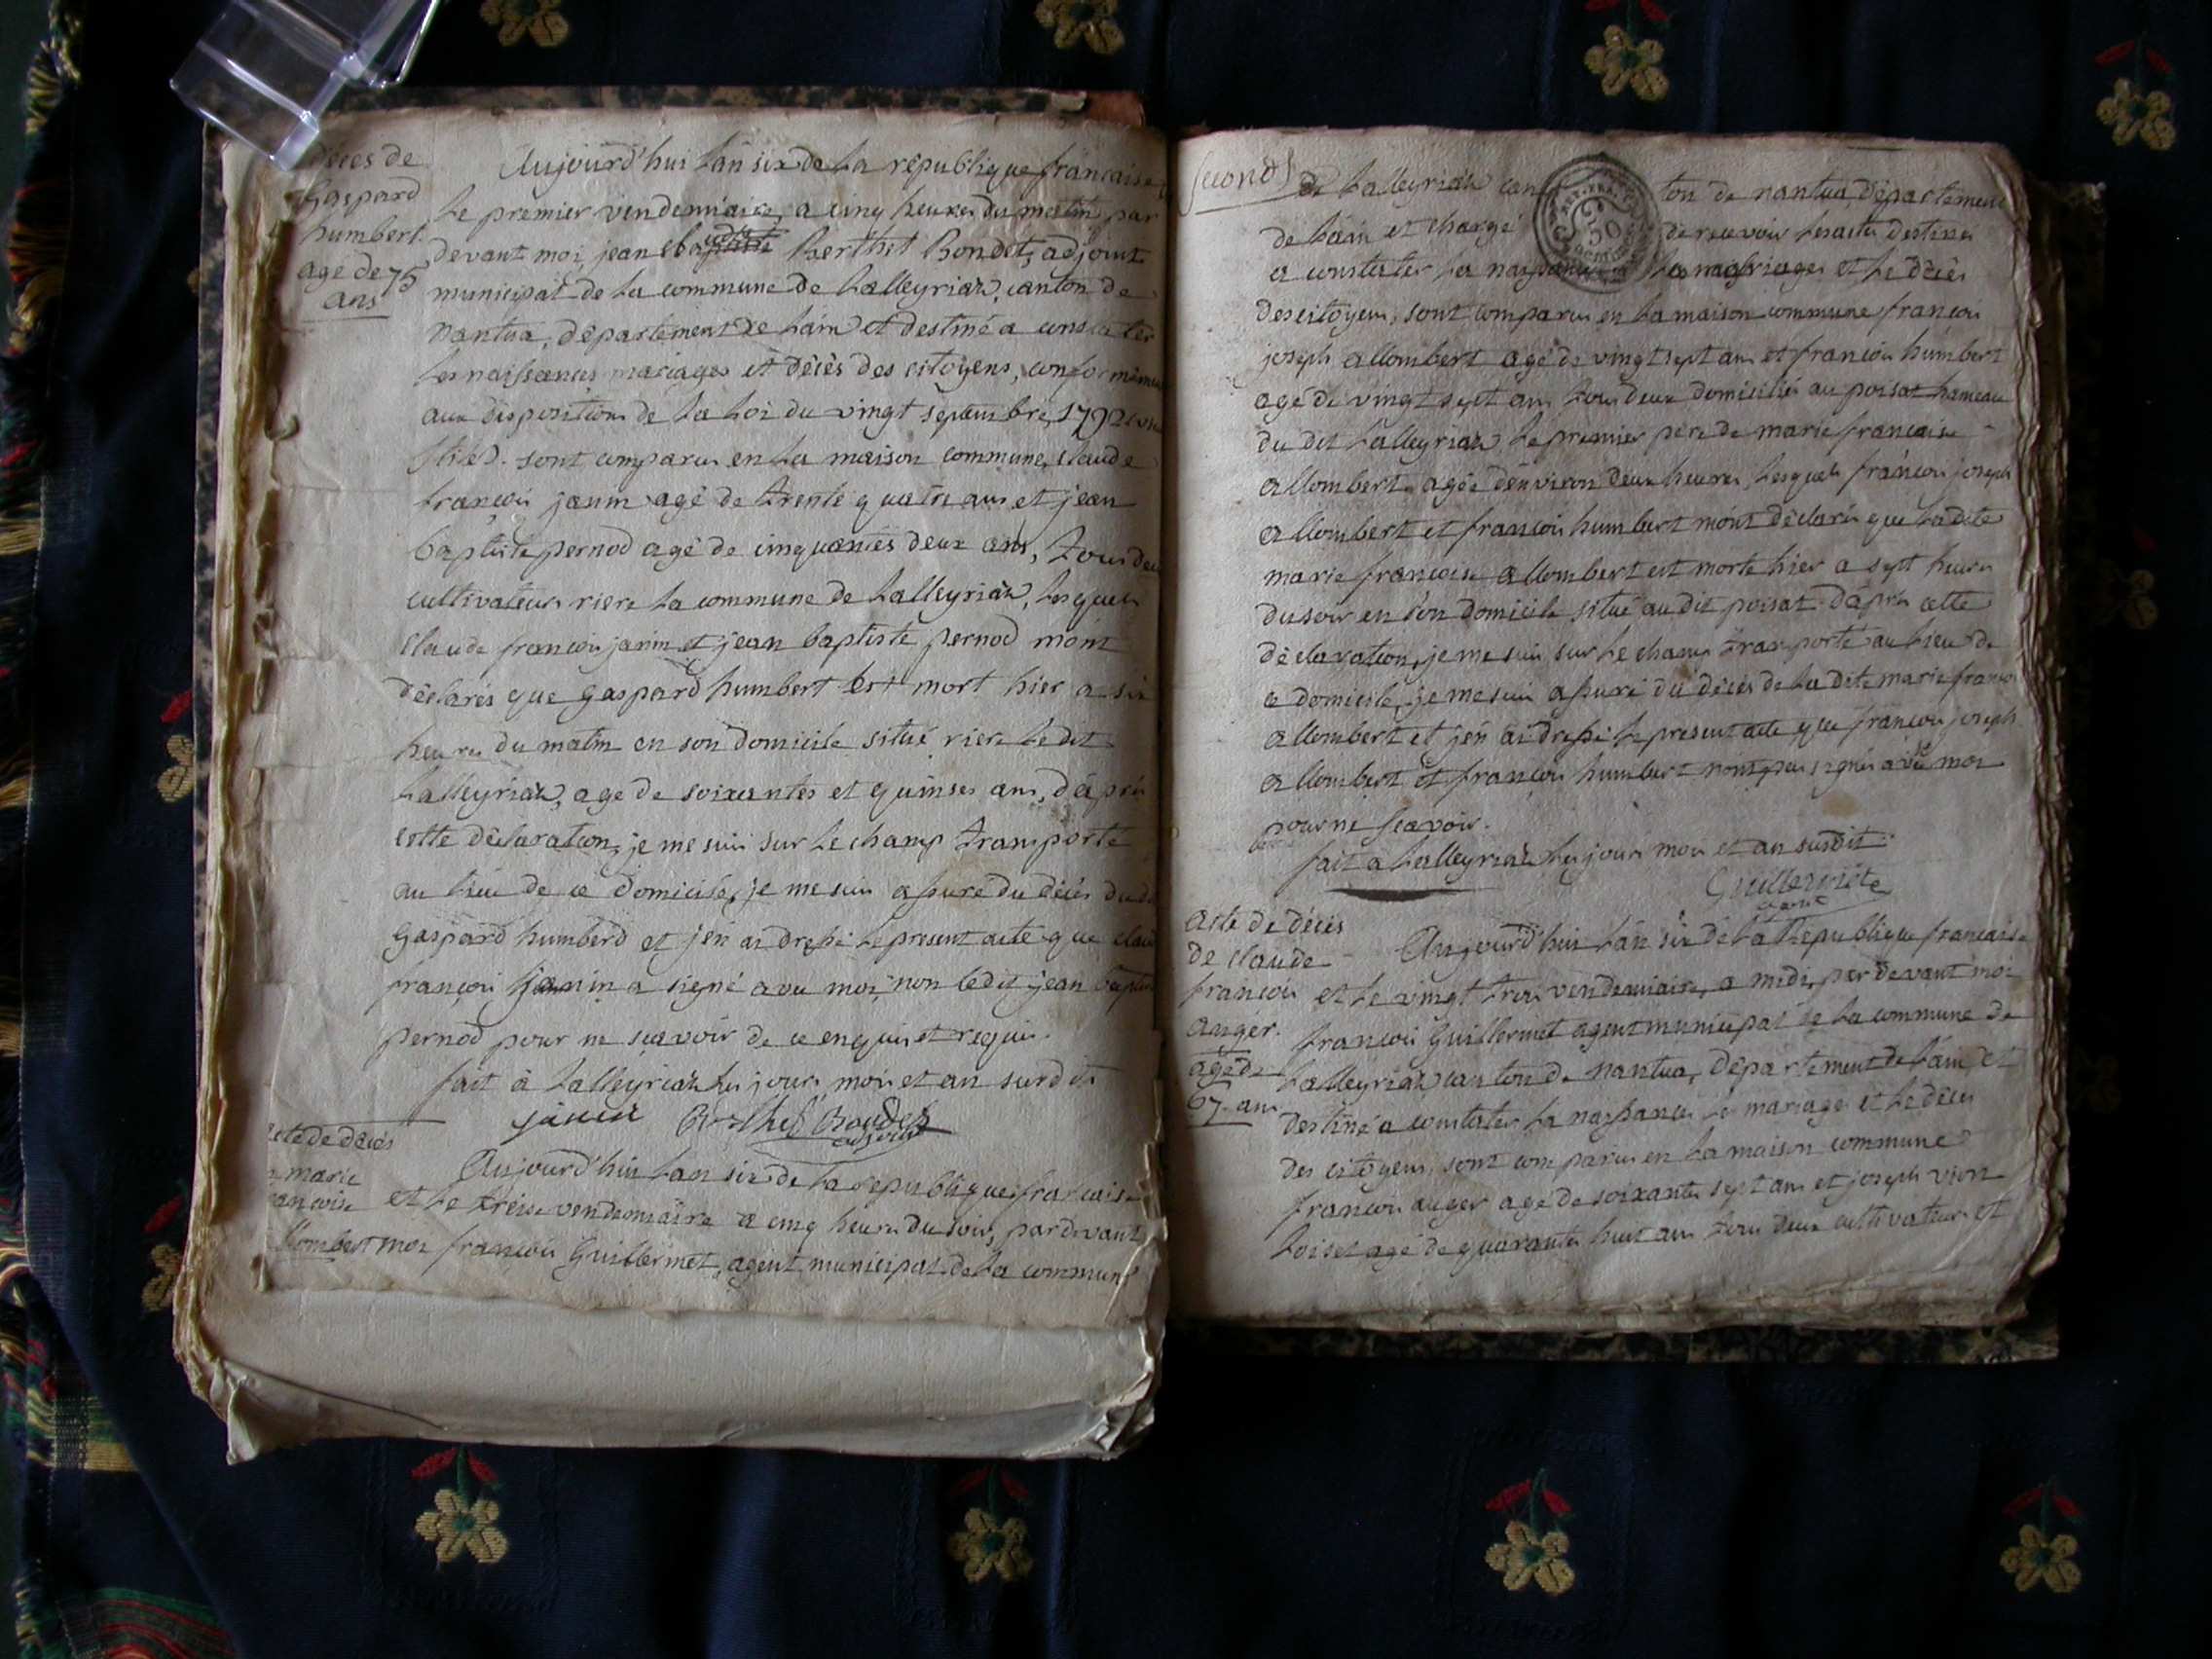 décès de
Gaspard
humbert
agé de 75
ans
Aujourd'hui L'an six de La république francaise
Le premier vendemiaire, a cinq heures du matin par
devant moi, jean baptiste Berthet Bondet, adjoint
municipal de La commune de Lalleyriat, canton de
nantua, département de L'ain et destiné a constater
Les naissances mariages et décès des citoyens, conformémen
aux dispositions de La Loi du vingt septembre 1792 (vieu
stile). sont comparus en La maison commune, claude
françois janin agé de trente quatre ans et jean
baptiste pernod agé de cinquantes deux ans, tous deu
cultivateurs riere La commune de Lalleyriat, Lesquels
Claude françois janin et jean baptiste pernod m'ont
déclarés que Gaspard humbert est mort hier a six
heures du matin en son domicile situé riere Le dit
Lalleyriat, age de soixantes et quinses ans, d'après
cette déclaration, je me suis sur Le champ transporté
au Lieu de ce domicile, je me suis assuré du décès du d
Gaspard humberd et j'en ai dressé Le present acte que clau
françois janin a signé avec moi, non ledit jean baptis
pernod pour ne scavoir de ce enquis et requis.
fait à Lalleyriat Les jours mois et an susdit
janin Berthet Bondet
adjoint
acte de décès
marie
ancoise
Lombert
Aujourd'hui L'an six de La republique francaise
et Le treise vendemiaire a cinq heures du soir, pardevant
moi françois Guillermet, agent municipal de La commune
second
de Lalleyriat canton de nantua département
REP. FRA.
50
de L'ain et chargé de recevoir Les actes destinés
a constater La naissance Les mariages et Le décès
des citoyens, sont comparus en La maison commune françois
joseph allombert agé de vingt sept ans et françois humbert
agé de vingt sept ans tous deux domiciliés au poisat hameau
du dit Lalleyriat, Le premier père de marie francaise
allombert agée d'environ deux heures, Lesquels françois joseph
allombert et françois humbert m'ont déclarés que Ladite
marie francoise allombert est morte hier a sept heures
du soir en son domicile situé au dit poisat. D'après cette
déclaration, je me suis sur Le champ transporté au Lieu de
ce domicile, je me suis assuré du décès de La dite marie françoi
allombert et j'en ai dressé Le present acte que françois joseph
allombert et françois humbert n'ont pas signés avec moi
pour ne scavoir.
fait a Lalleyriat Les jours mois et an susdit
Guillermet
agent
acte de décès
de claude
françois
auger.
agé de
67. ans
Aujourd'hui L'an six de La Republique francaise
et Le vingt trois vendemiaire, a midi, par devant moi
françois Guillermet agent municipal de La commune de
Lalleyriat canton de nantua, département de L'ain et
destiné a constater La naissances Les mariages et Le décès
des citoyens, sont comparus en La maison commune
françois auger agé de soixantes sept ans et joseph vion
Loiset agé de quarantes huit ans tous deux cultivateurs et